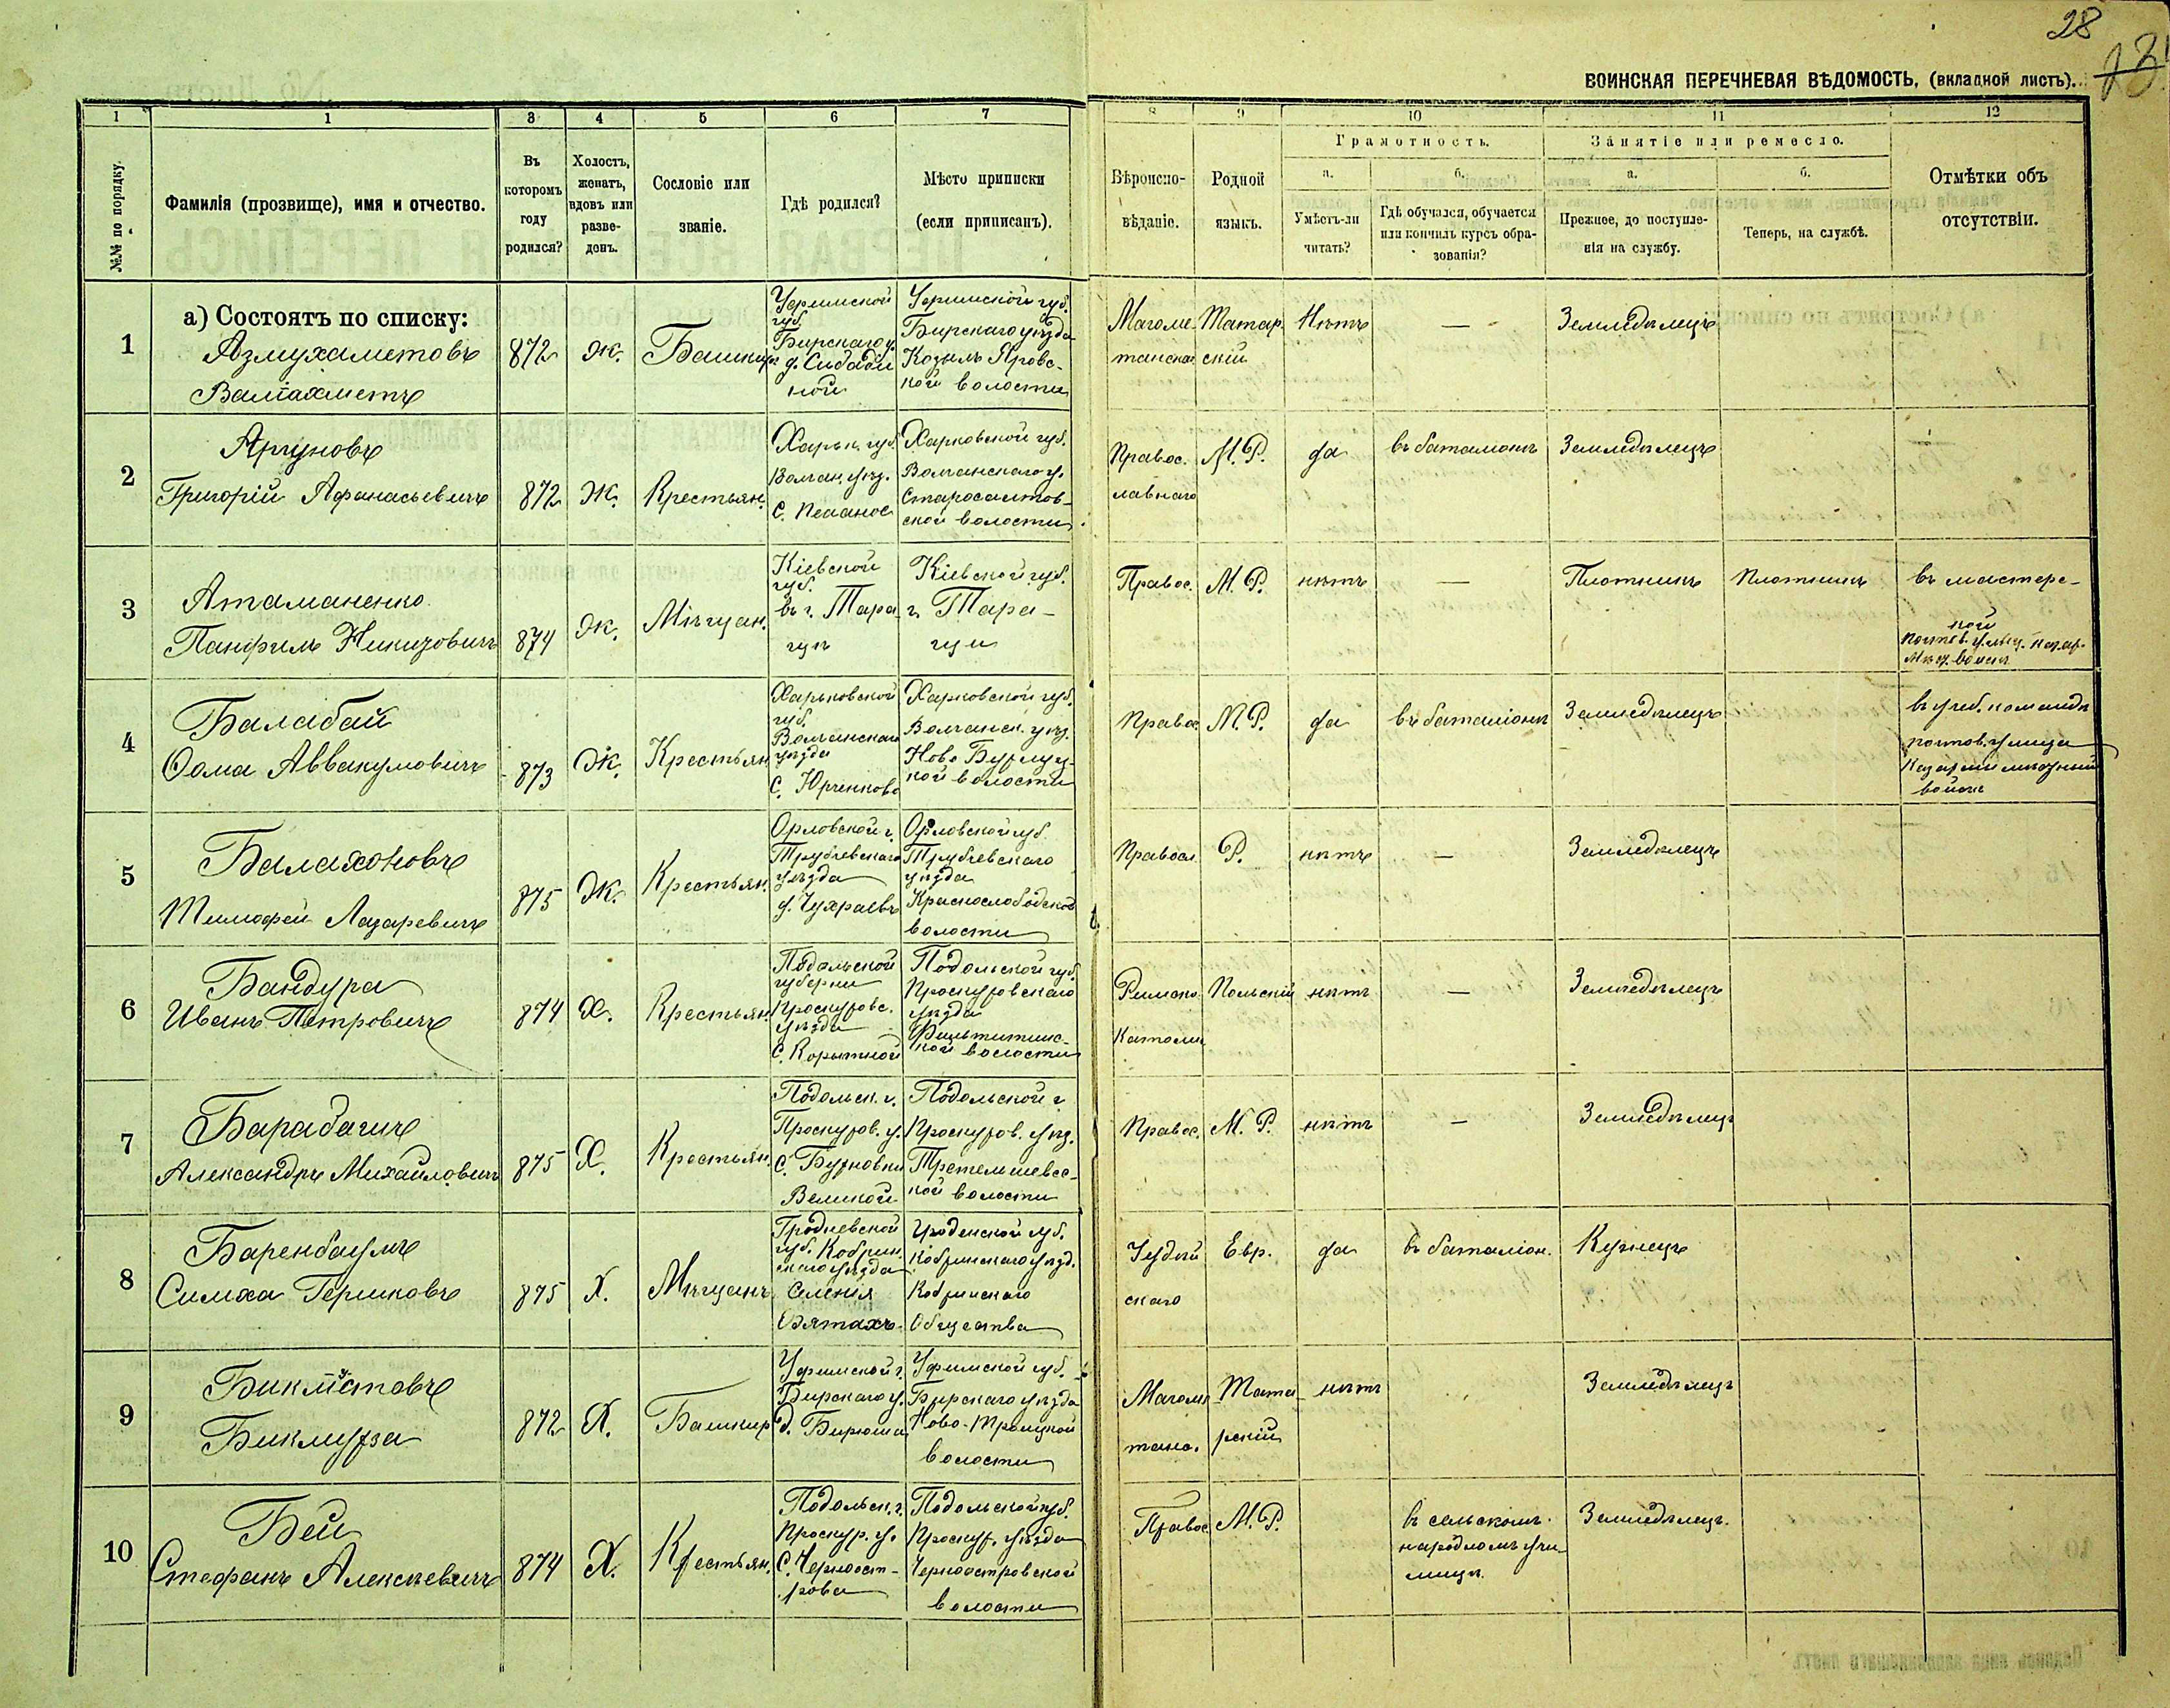 28
ВОИНСКАЯ ПЕРЕЧНЕВАЯ ВѢДОМОСТЬ, (вкладной листъ).
1 1 3 4 5 6 7 8 9 10 11 12
№№ по порядку.
Фамилія (прозвище), имя и отчество.
Въ которомъ году родился?
Холостъ, женатъ, вдовъ или разведенъ.
Сословіе или званіе.
Гдѣ родился?
Мѣсто приписки (если приписанъ).
Вѣроисповѣданіе.
Родной языкъ.
Грамотность.
а.
Умѣетъ-ли читать?
б.
Гдѣ обучался, обучается или кончилъ курсъ образованія?
Занятіе или ремесло.
а.
Прежнее, до поступленія на службу.
б.
Теперь, на службѣ.
Отмѣтки объ отсутствіи.
а) Состоятъ по списку:
1
Азмухаметовъ
Валіахметъ
872
ж.
Башкир
Уфимской
губ.
Бирскаго у.
Уфимской губ.
Бирскаго уѣзда
Козылъ Яровс-
кой волости
Магоме-
танска
Татар-
скій
Нѣтъ
—
Земледѣлецъ
2
Аргуновъ
Григорій Афанасьевичъ
872
Ж.
Крестьян.
Харьк. губ.
Волчан. уѣз.
Харковской губ.
Волчанскаго у.
Старосалтов-
ской волости
Правос-
лавнаго
М. Р.
да
въ баталионѣ
Земледѣлецъ
—
3
Атаманенко
Панфилъ
874
Ж.
Мѣщан.
Кіевской
губ.
въ г. Тара-
щѣ
Кіевской губ.
г. Тара-
щи
Правос.
М. Р.
нѣтъ
—
Плотникъ
Плотникъ
въ мастерс-
кой
4
Балабай
Ѳома Аввакумовичъ
873
Ж.
Крестьян
Харьковской
губ.
Волчанскаго
уѣзда
С. Юрченково
Харковской губ.
Волчанск. уѣз.
Ново Бурлуц-
кой волости
Правос.
М. Р.
да
въ баталіонѣ
Земледѣлецъ
въ учеб. командѣ
5
Балахоновъ
Тимофей Лазаревичъ
875
Ж.
Крестьян.
Орловской г.
Трубчевскаго
уѣзда
д. Чухраевъ
Орловской губ.
Трубчевскаго
уѣзда
Краснослободской
волости
Правосл
Р.
нѣтъ
—
Земледѣлецъ
6
Бандура
Иванъ Петровичъ
874
Х.
Крестьян.
Подольской
губерни
Проскуровс.
уѣзда
С. Корытной
Подольской губ.
Проскуровскаго
уѣзда
кой волости
Римско
Католи
Польскій
нѣтъ
—
Земледѣлецъ
7
Барабашъ
Александръ Михайловичъ
875
Х.
Крестьян.
Подольск. г.
Проскуров. у.
Великой
Подольской г.
Проскуров. уѣз.
Третельшевс-
кой волости
Правос.
М. Р.
нѣтъ
—
Земледѣлец
8
Баренбаумъ
Симха Гершковъ
875
Х.
Мѣщанъ
Гродневской
губ. Кобрин-
скаго уѣзда
Селенія
Гроденской губ.
Кобринскаго уѣзд.
Кобринскаго
Общества
Іудей
скаго
Евр.
да
въ баталіон.
Кузнецъ
9
Бикмурза
872
Х.
Башкир
Уфимской г.
Бирскаго у.
д. Бирюша
Уфимской губ.
Бирскаго уѣзда
Ново-Троицкой
волости
Магоме
танс.
Тата-
рскій
нѣтъ
Земледѣлецъ
10
Бей
Стефанъ Алексѣевичъ
874
Х.
Крестьян.
Подольск. г.
Проскур. у.
С. Черноост-
рова
Подольской губ.
Проскур. уѣзда
Черноостровской
волости
Правос.
М. Р.
въ сельскомъ
народномъ учи-
лищѣ.
Земледѣлецъ.